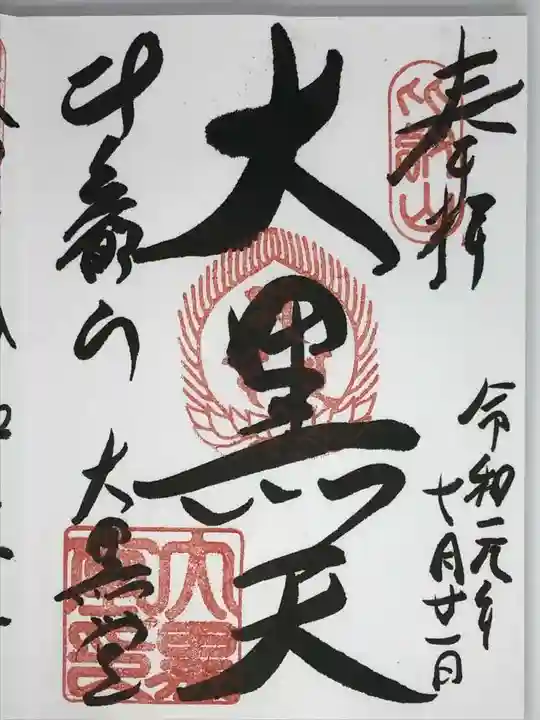 奉拝
令和元年
十月廿一日
大黒天
比叡山
大黒堂